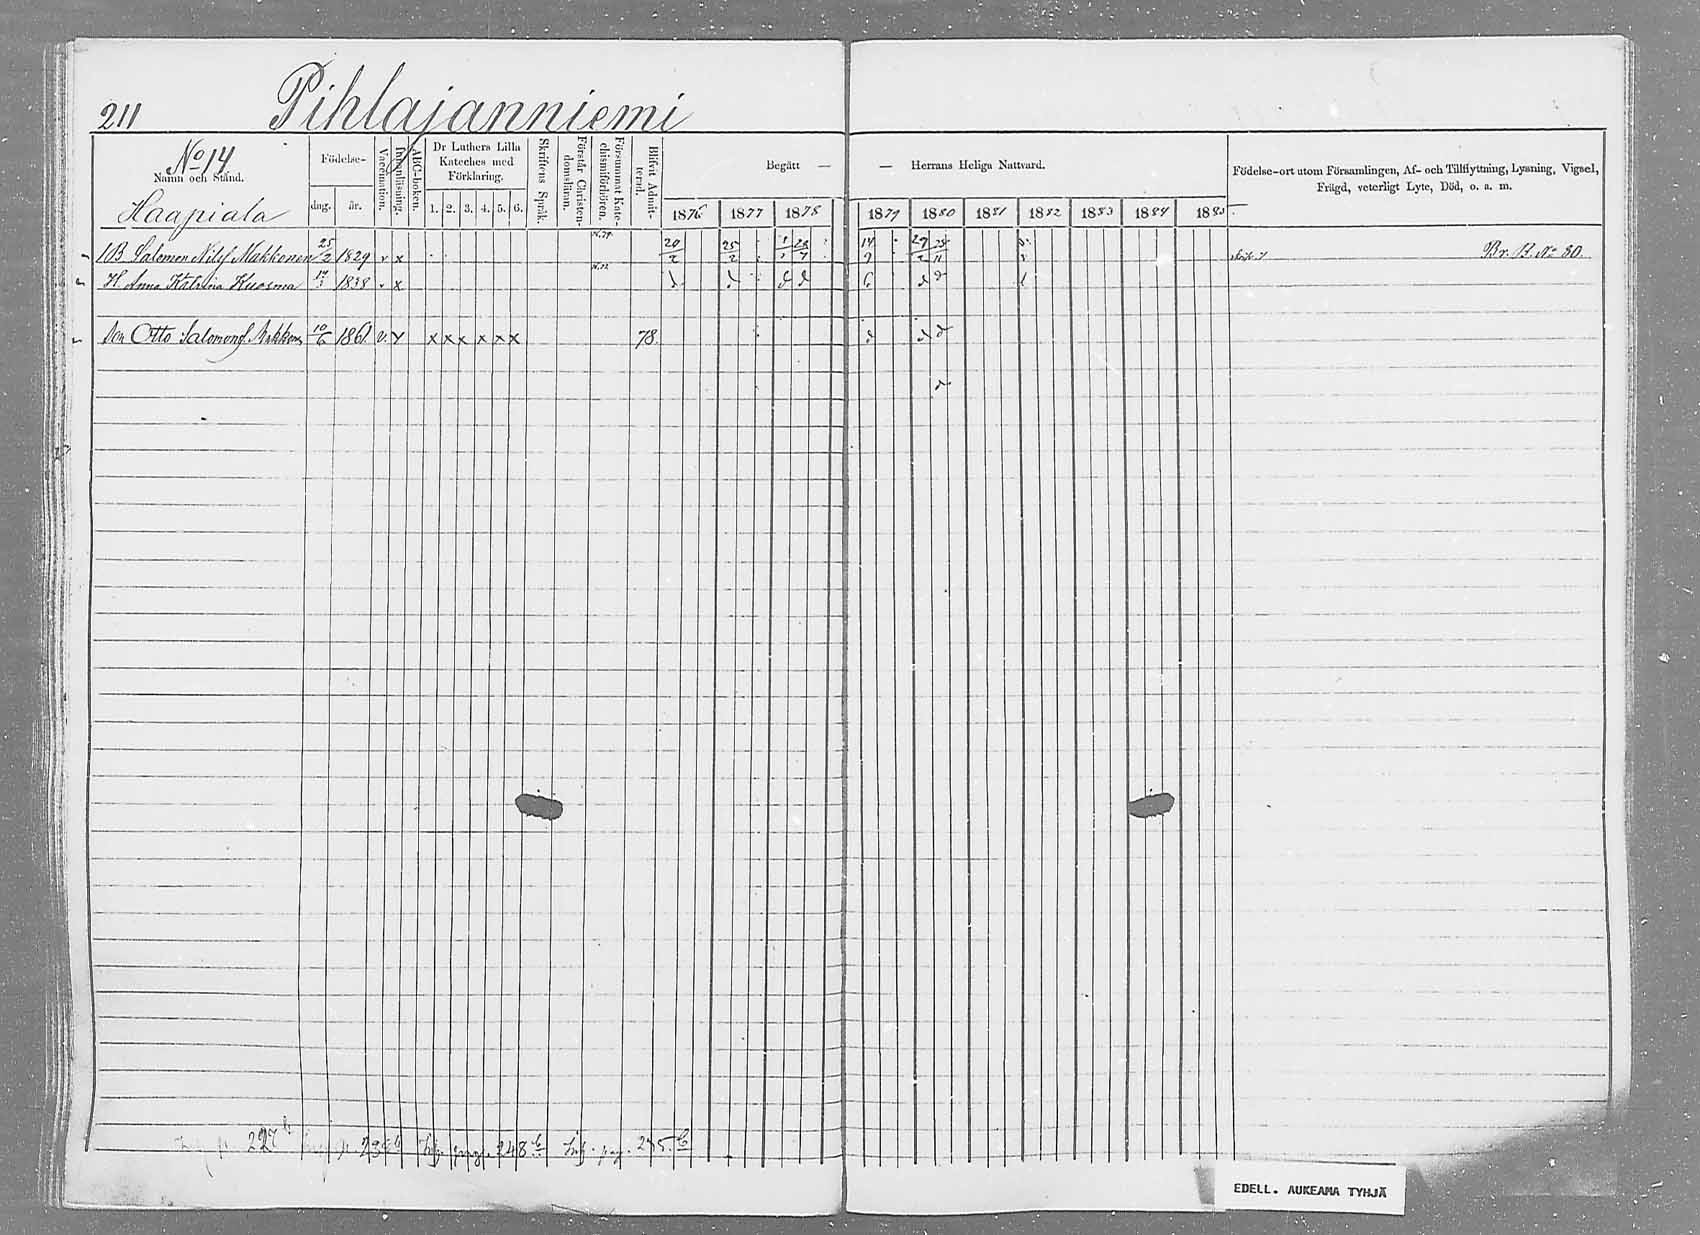 211 Pihlajanniemi
No 14
Namn och Stånd.
Haapiala
Födelse-
dag. år.
Vaccination.
Innanläsning.
ABC-boken.
Dr Luthers Lilla Kateches med Förklaring.
1. 2. 3. 4. 5. 6.
Skriftens Språk.
Förstår Christen-domsläran.
Försummat Kate-chismiförhören.
Blifvit Admit-terad.
Begått — — Herrans Heliga Nattvard.
1876 1877 1878 1879 1880 1881 1882 1883 1884 1885
Födelse-ort utom Församlingen, Af- och Tillflyttning, Lysning, Vigsel,
Frägd, veterligt Lyte, Död, o. a. m.
B Salomon Nilsf Makkonen 25/2 1829 v x 20/2 25/2 28 14/9 29/2 Br. B. No 80.
H. Anna Katrina Kuosma 1838 v x
Son Otto Salomonsf Makkonen 10/6 1861 v. x x x x x x x 78.
227 248 275
EDELL. AUKEAMA TYHJÄ